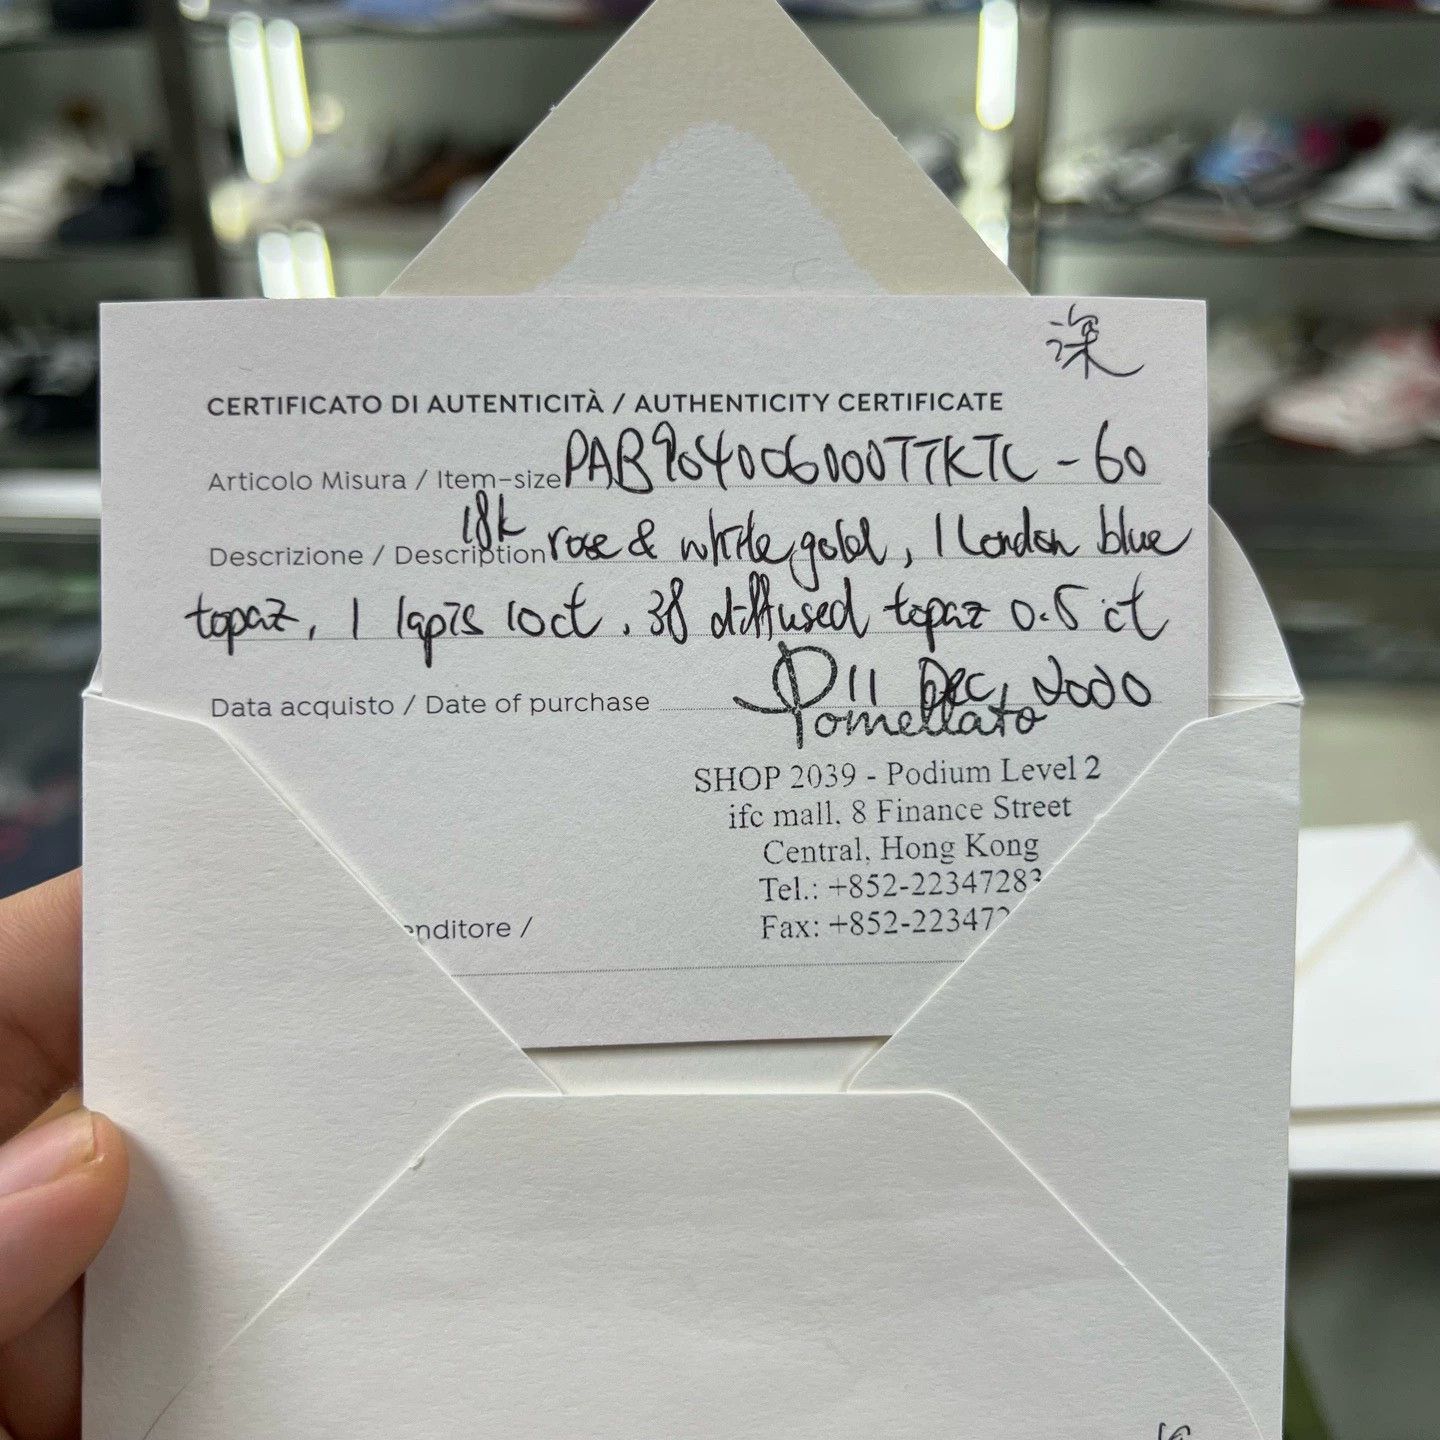 深
CERTIFICATO DI AUTENTICITÀ / AUTHENTICITY CERTIFICATE
Articolo Misura / Item-size PAB904006000TTKTL - 60
Descrizione / Description 18k rose & white gold, 1 london blue
topaz, 1 lapis 10ct. 38 diffused topaz 0.5 ct
Data acquisto / Date of purchase 11 Dec, 2020
Pomellato
SHOP 2039 - Podium Level 2
ifc mall. 8 Finance Street
Central, Hong Kong
Tel.: +852-22347283
enditore /
Fax: +852-223472